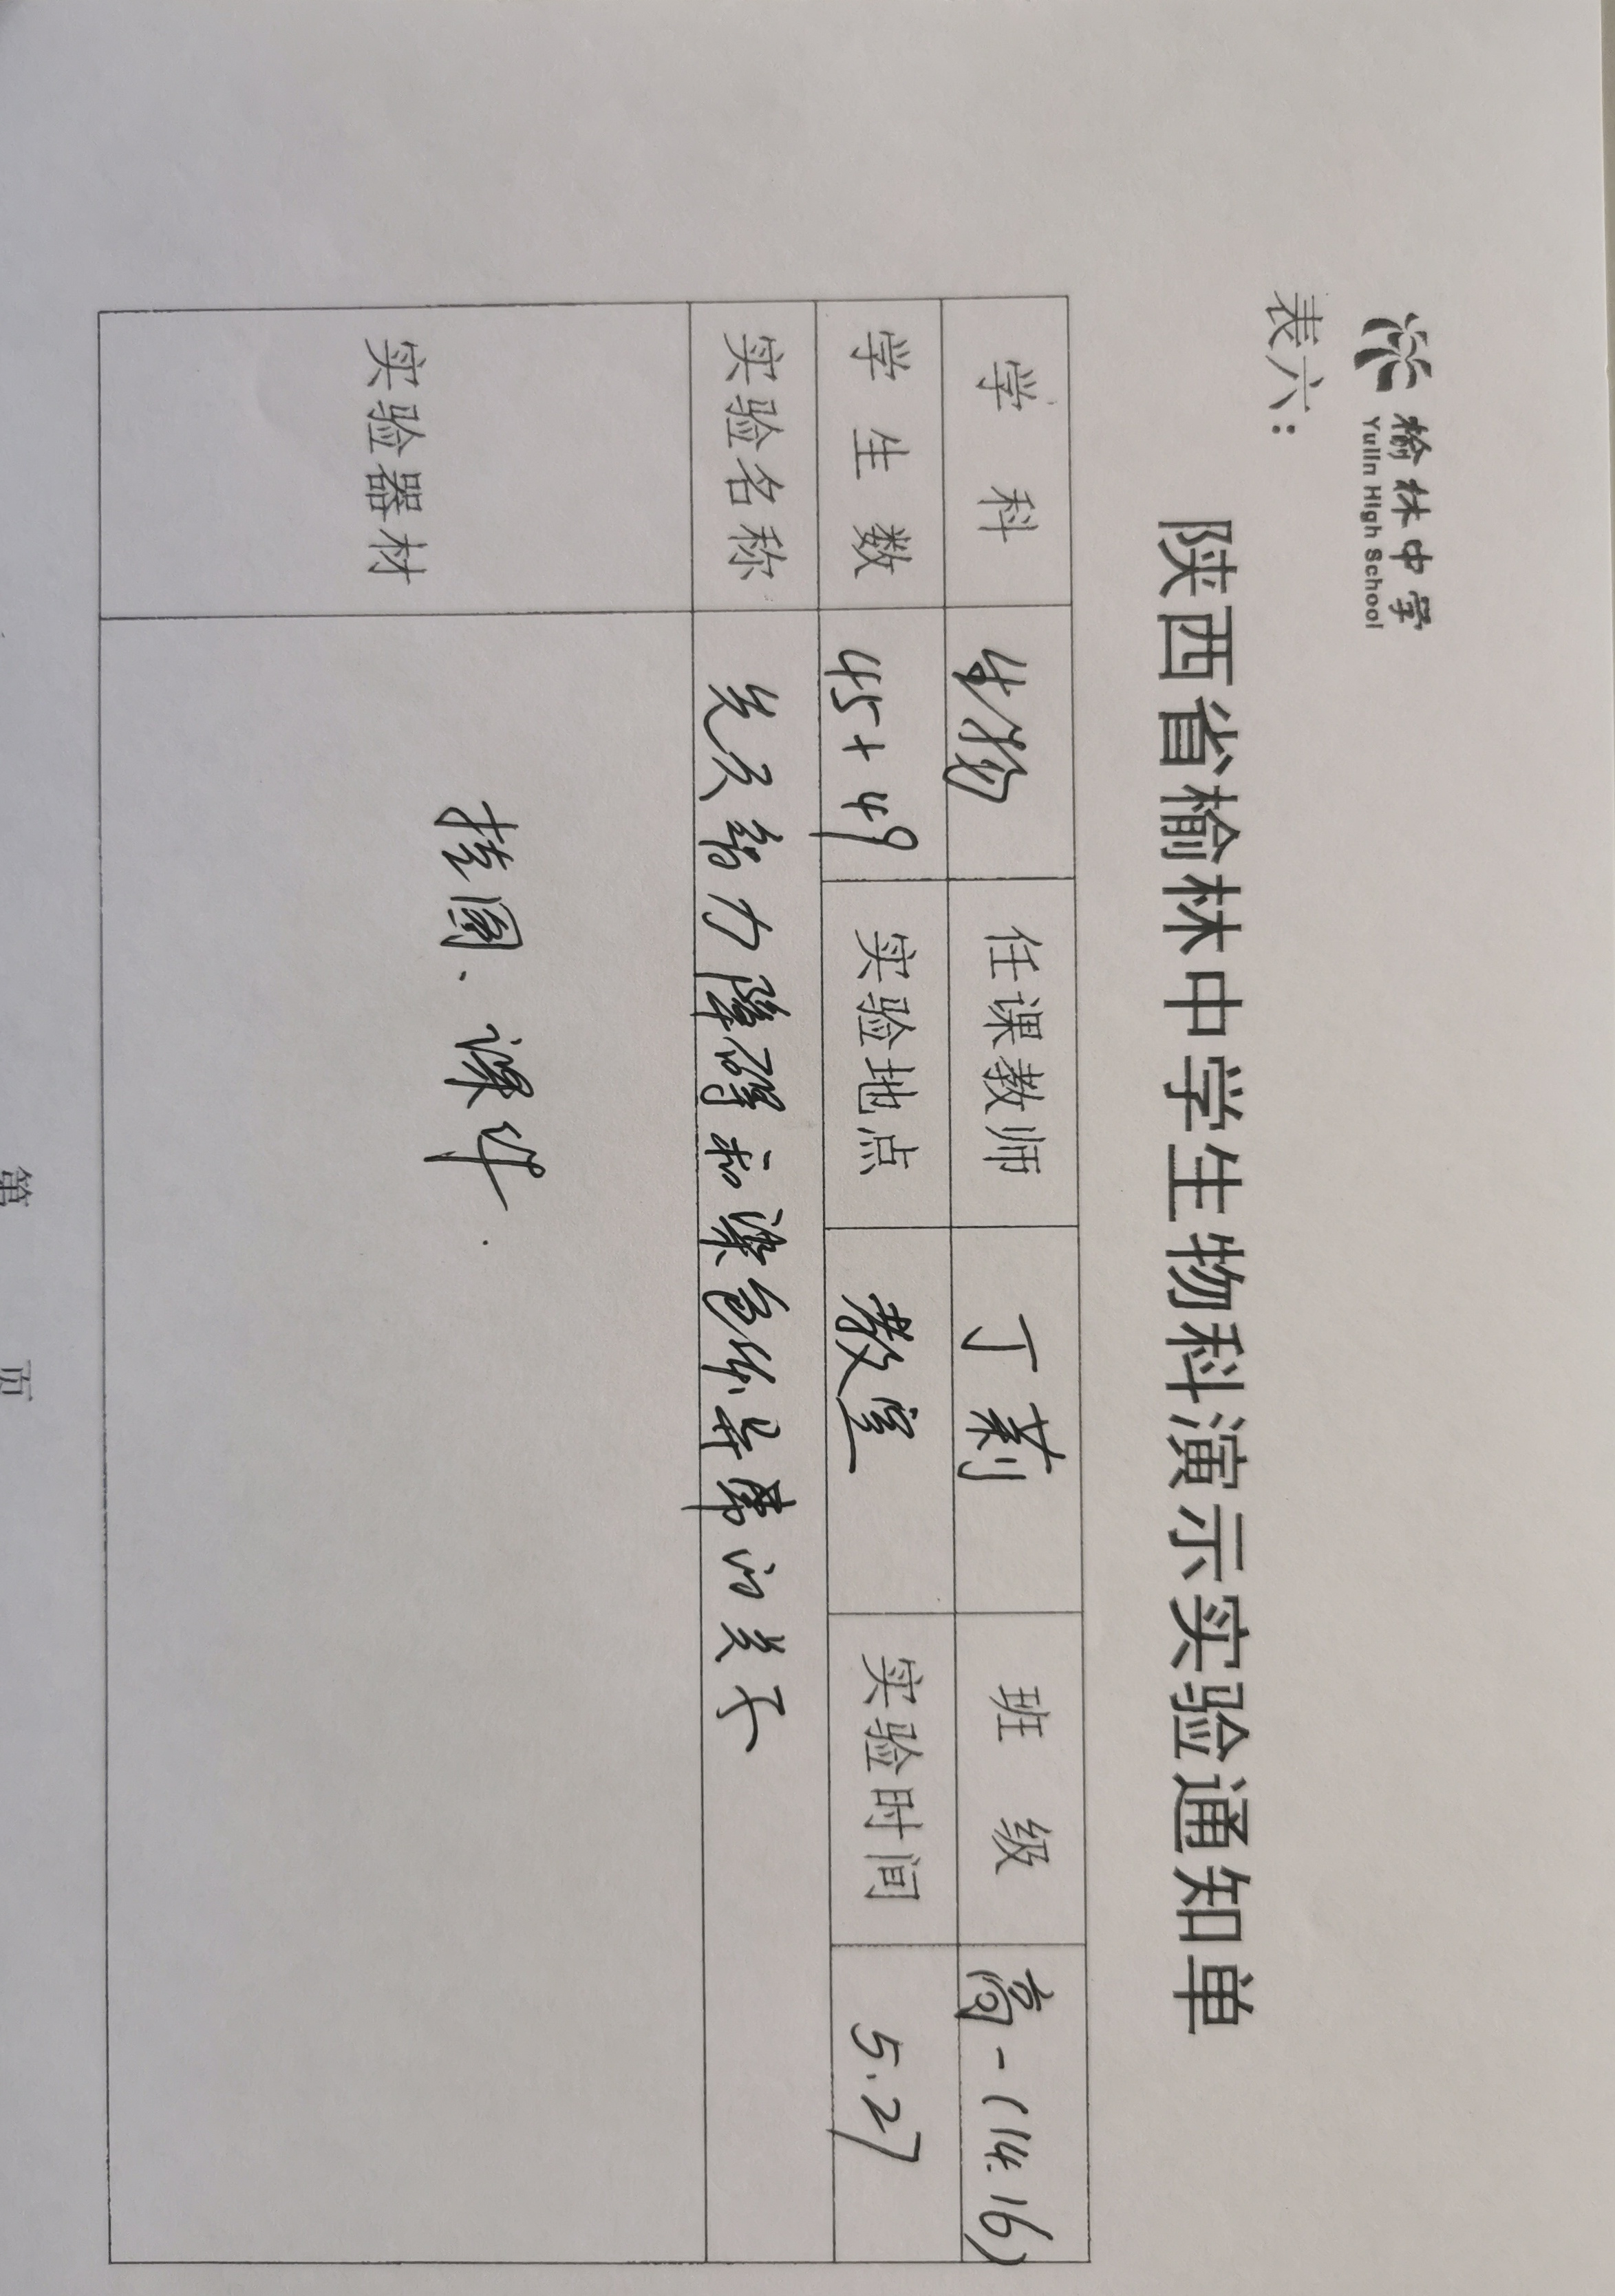 榆林中学
Yulin High School
表六：
陕西省榆林中学生物科演示实验通知单
学 科 生物 任课教师 丁莉 班 级 高一(14.16)
学 生 数 45+49 实验地点 教室 实验时间 5.27
实验名称 先天智力障碍和染色体异常的关系
实验器材 挂图、课件.
第 页